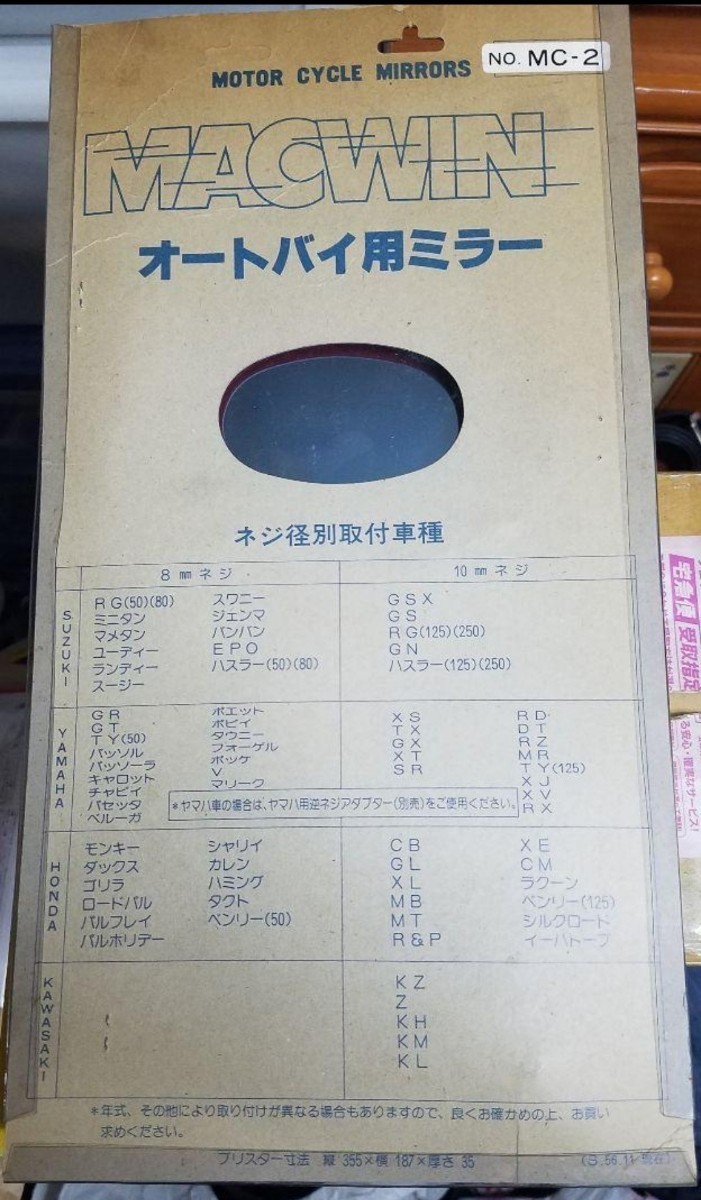 NO. MC-2
MOTOR CYCLE MIRRORS
MACWIN
オートバイ用ミラー
ネジ径別取付車種
8mmネジ 10mmネジ
SUZUKI
RG(50)(80) スワニー GSX
ミニタン ジェンマ GS
マメタン バンバン RG(125)(250)
ユーディー EPO GN
ランディー ハスラー(50)(80) ハスラー(125)(250)
スージー
YAMAHA
GR ポエット XS RD
GT ボビイ TX DT
TY(50) タウニー GX RZ
パッソル フォーゲル XT MR
パッソーラ ポッケ SR TY(125)
キャロット V XJ
チャピイ マリーク XV
パセッタ RX
ベルーガ
*ヤマハ車の場合は、ヤマハ用逆ネジアタプター(別売)をご使用ください。
HONDA
モンキー シャリイ CB XE
ダックス カレン GL CM
ゴリラ ハミング XL ラクーン
ロードパル タクト MB ベンリー(125)
パルフレイ ベンリー(50) MT シルクロード
パルホリデー R&P イーハトーブ
KAWASAKI
KZ
Z
KH
KM
KL
*年式、その他により取り付けが異なる場合もありますので、良くお確かめの上、お買い
求めください。
ブリスター寸法 縦355×横187×厚さ35 (S.56.11現在)
宅急便
受取指定